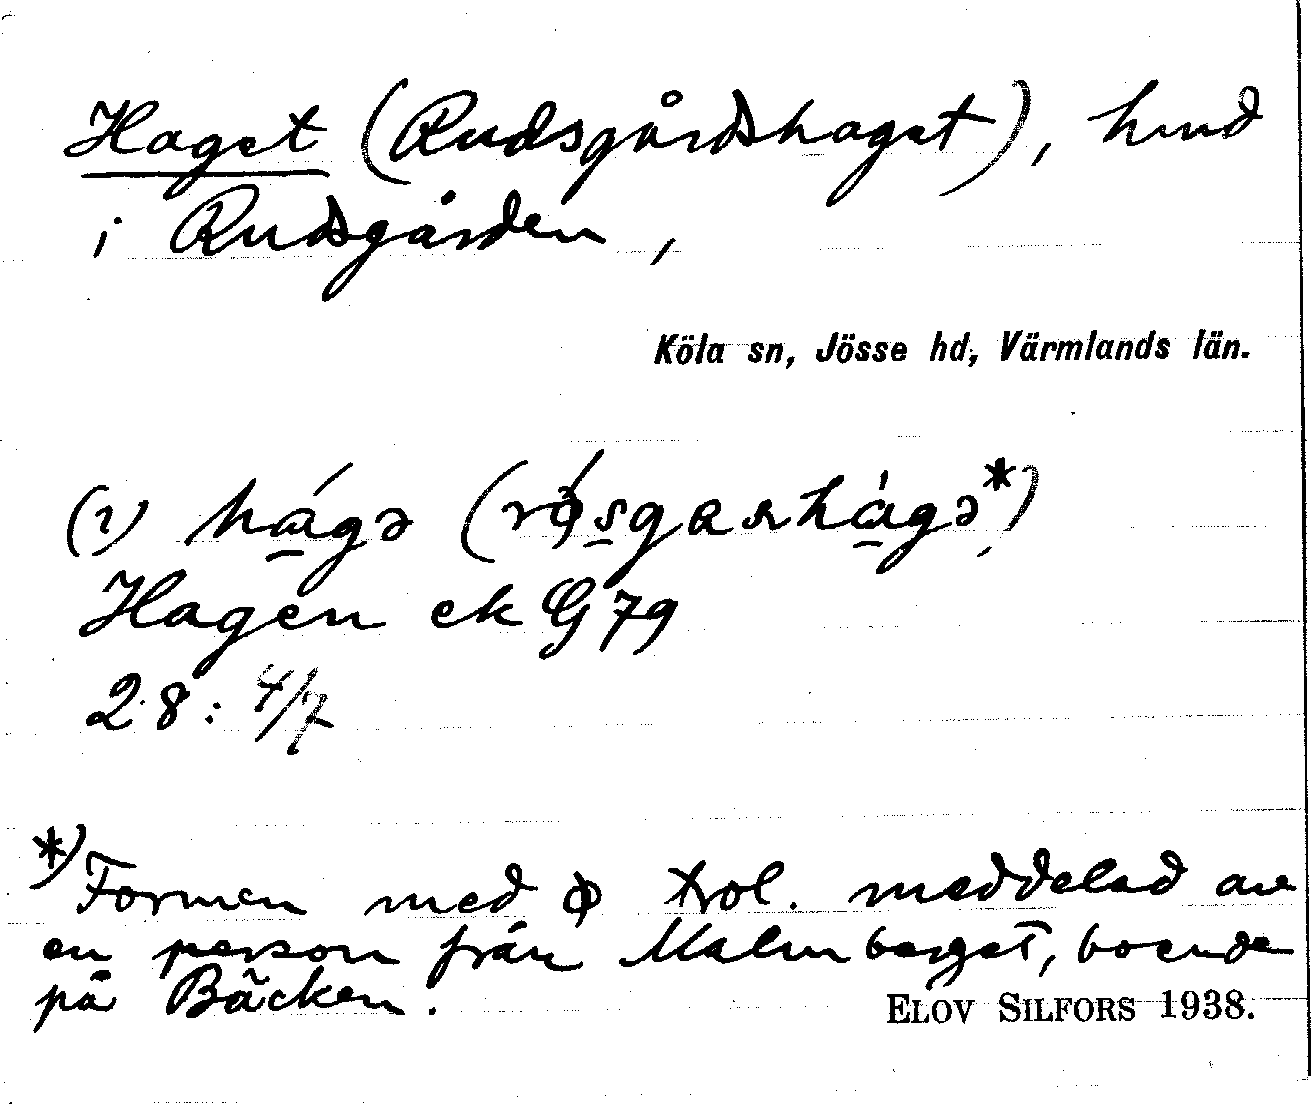 Haget (Rudsgårdshaget), hmd
i Rudsgården,
Köla sn, Jösse hd, Värmlands län.
(1) hágə (rǿsgaṣhàgə*)
Hagen ek G 79
28: 4/7
*) Formen med ø trol. meddelad av
en person från Malmberget, boende
på Bäcken.
ELOV SILFORS 1938.